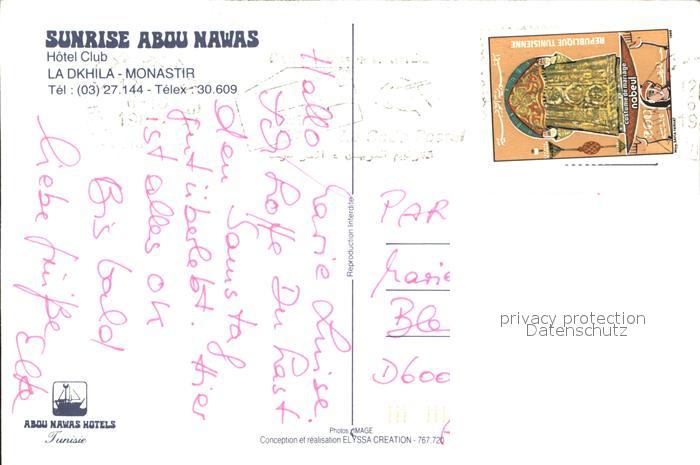 SUNRISE ABOU NAWAS
Hôtel Club
LA DKHILA - MONASTIR
Tél : (03) 27.144 - Télex : 30.609
Hallo Marie Luise.
Ich hoffe Du hast
den Samstag
gut überlebt. Hier
ist alles OK
Bis bald
liebe Grüße Elke
ABOU NAWAS HOTELS
Tunisie
Reproduction Interdite
Photos IMAGE
Conception et réalisation ELYSSA CREATION - 767.720
REPUBLIQUE TUNISIENNE
costume de mariage
nabeul
PAR
Marie
Ble
D600
privacy protection
Datenschutz